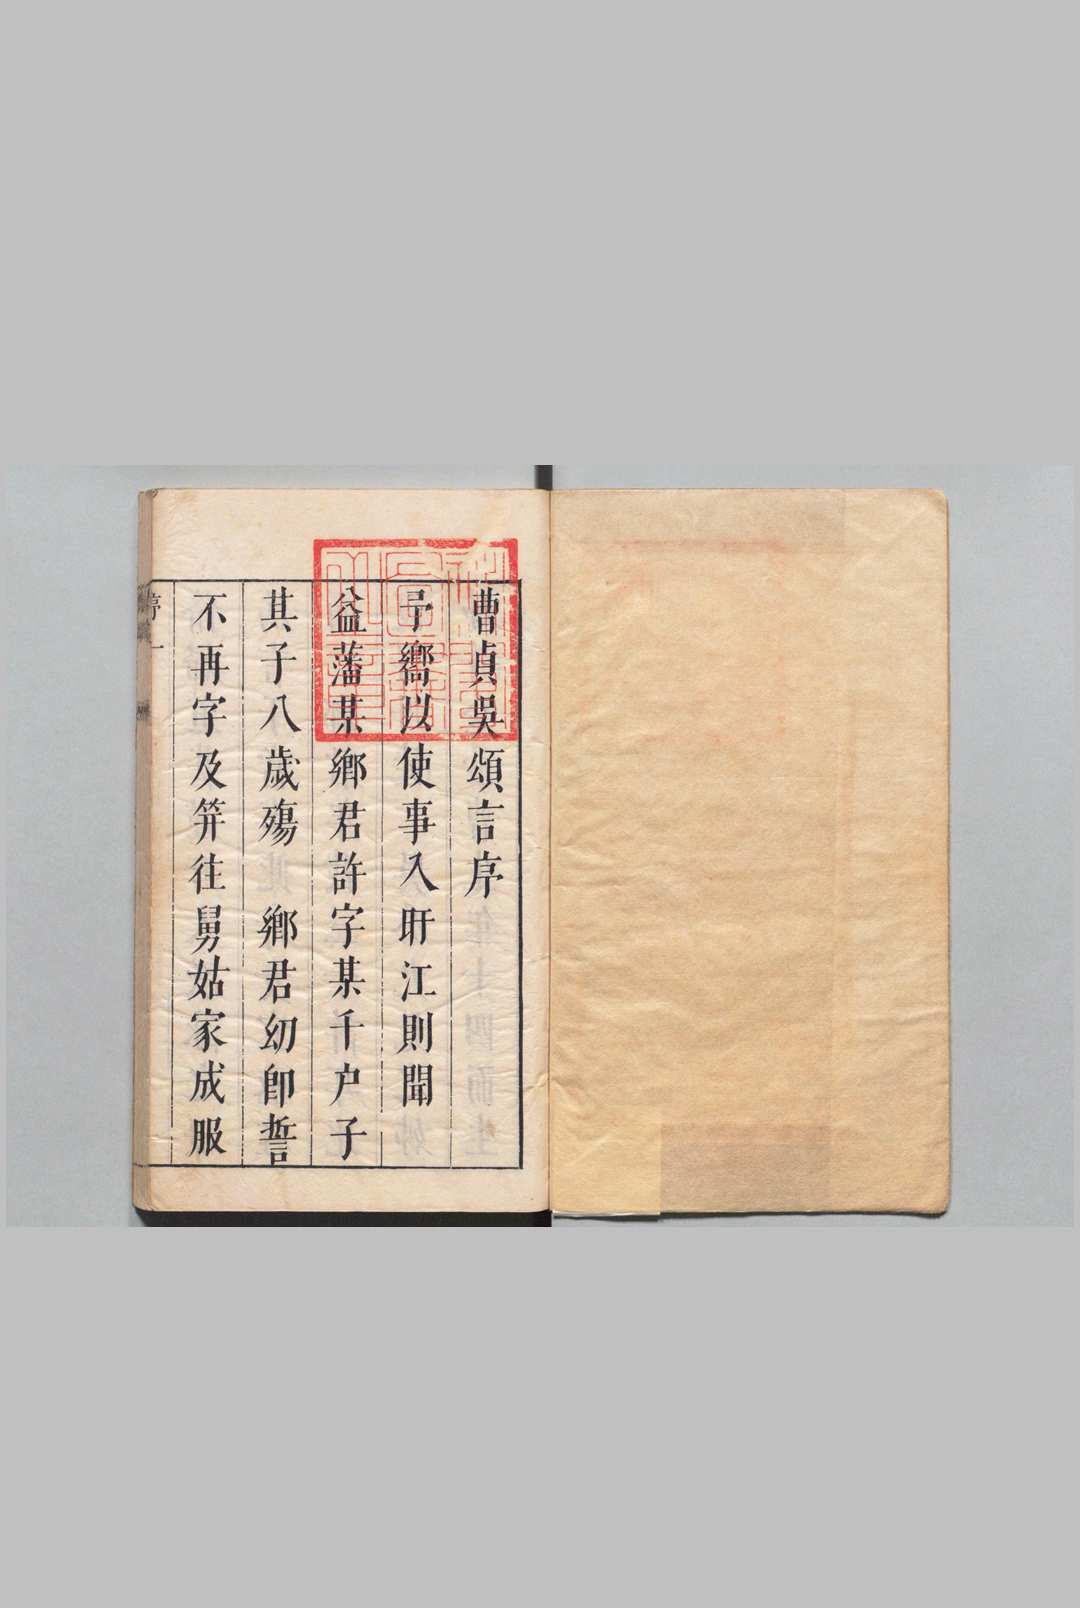 曹貞吳頌言序
予嚮以使事入盱江則聞
益藩某鄉君許字某千户子
其子八歲殤 鄉君幼卽誓
不再字及笄往舅姑家成服
序 一